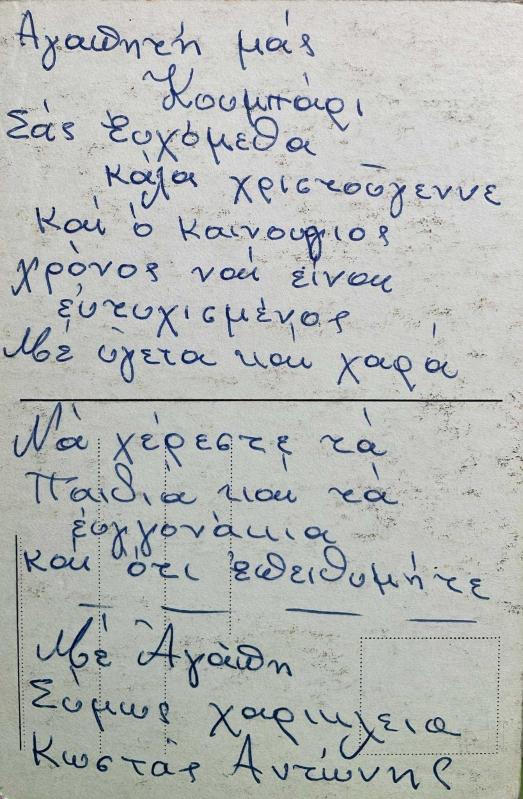 Αγαπητή μάς
Κουμπάρι
Σάς ἐυχόμεθα
κάλα χριστούγεννε
και ὁ καινουγιος
χρόνος ναι είναι
ἐυτυχισμένος
Μέ ὑγεια και χαρά
Νὰ χέρεστε τὰ
Παιδιὰ και τὰ
ἐυγγονάκια
και ὁτι ἐπειθυμήτε
Μέ Ἀγάπη
Σύμως χαρικλεια
Κωστάς Αντώνης